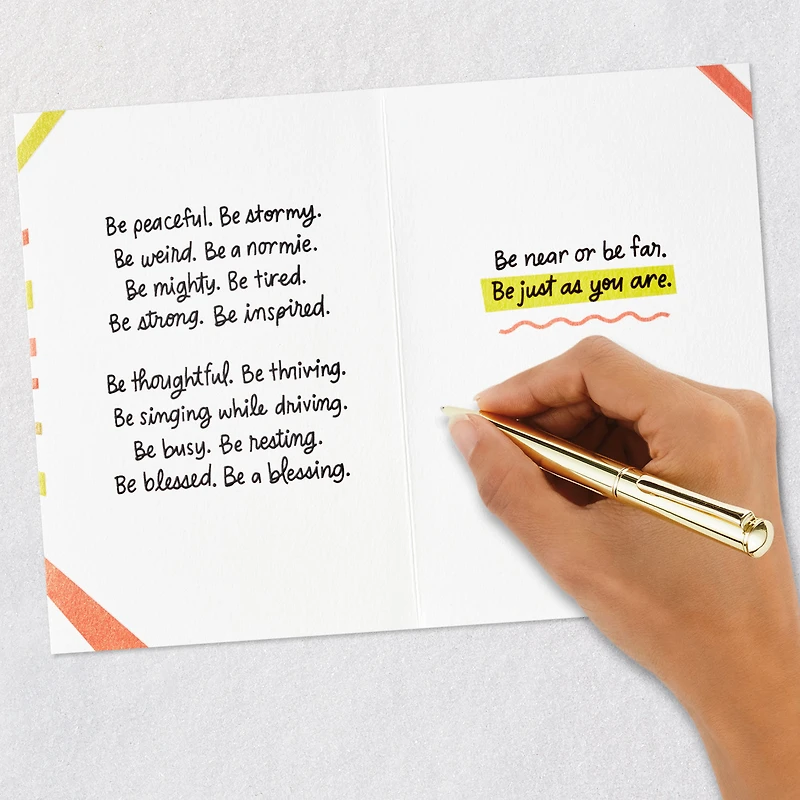 Be peaceful. Be stormy.
Be weird. Be a normie.
Be mighty. Be tired.
Be strong. Be inspired.
Be thoughtful. Be thriving.
Be singing while driving.
Be busy. Be resting.
Be blessed. Be a blessing.
Be near or be far.
Be just as you are.